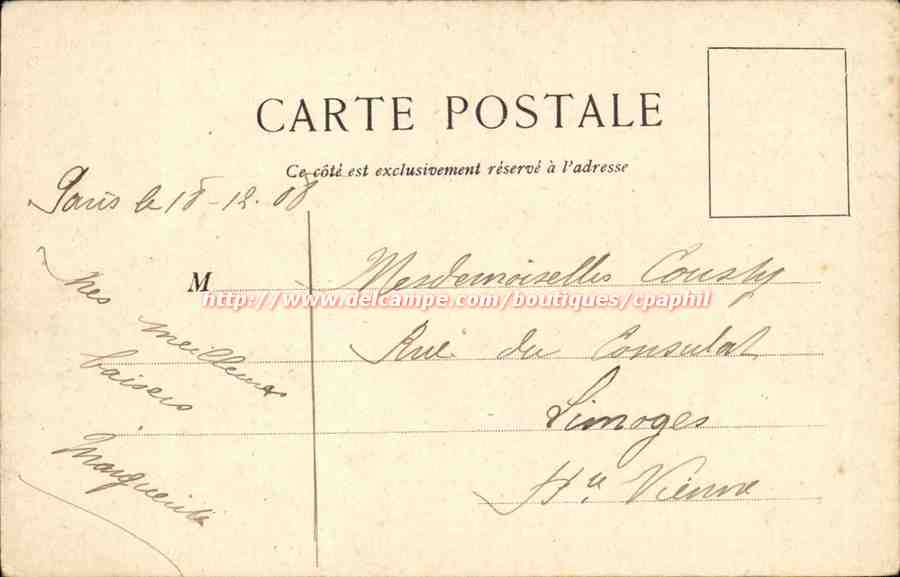 CARTE POSTALE
Ce côté est exclusivement réservé à l'adresse
Paris le 18-12-08
M
Mesdemoiselles Cousty
http://www.delcampe.com/boutiques/cpaphil
Rue du Consulat
Limoges
Hte Vienne
Mes
meilleurs
baisers
Marguerite